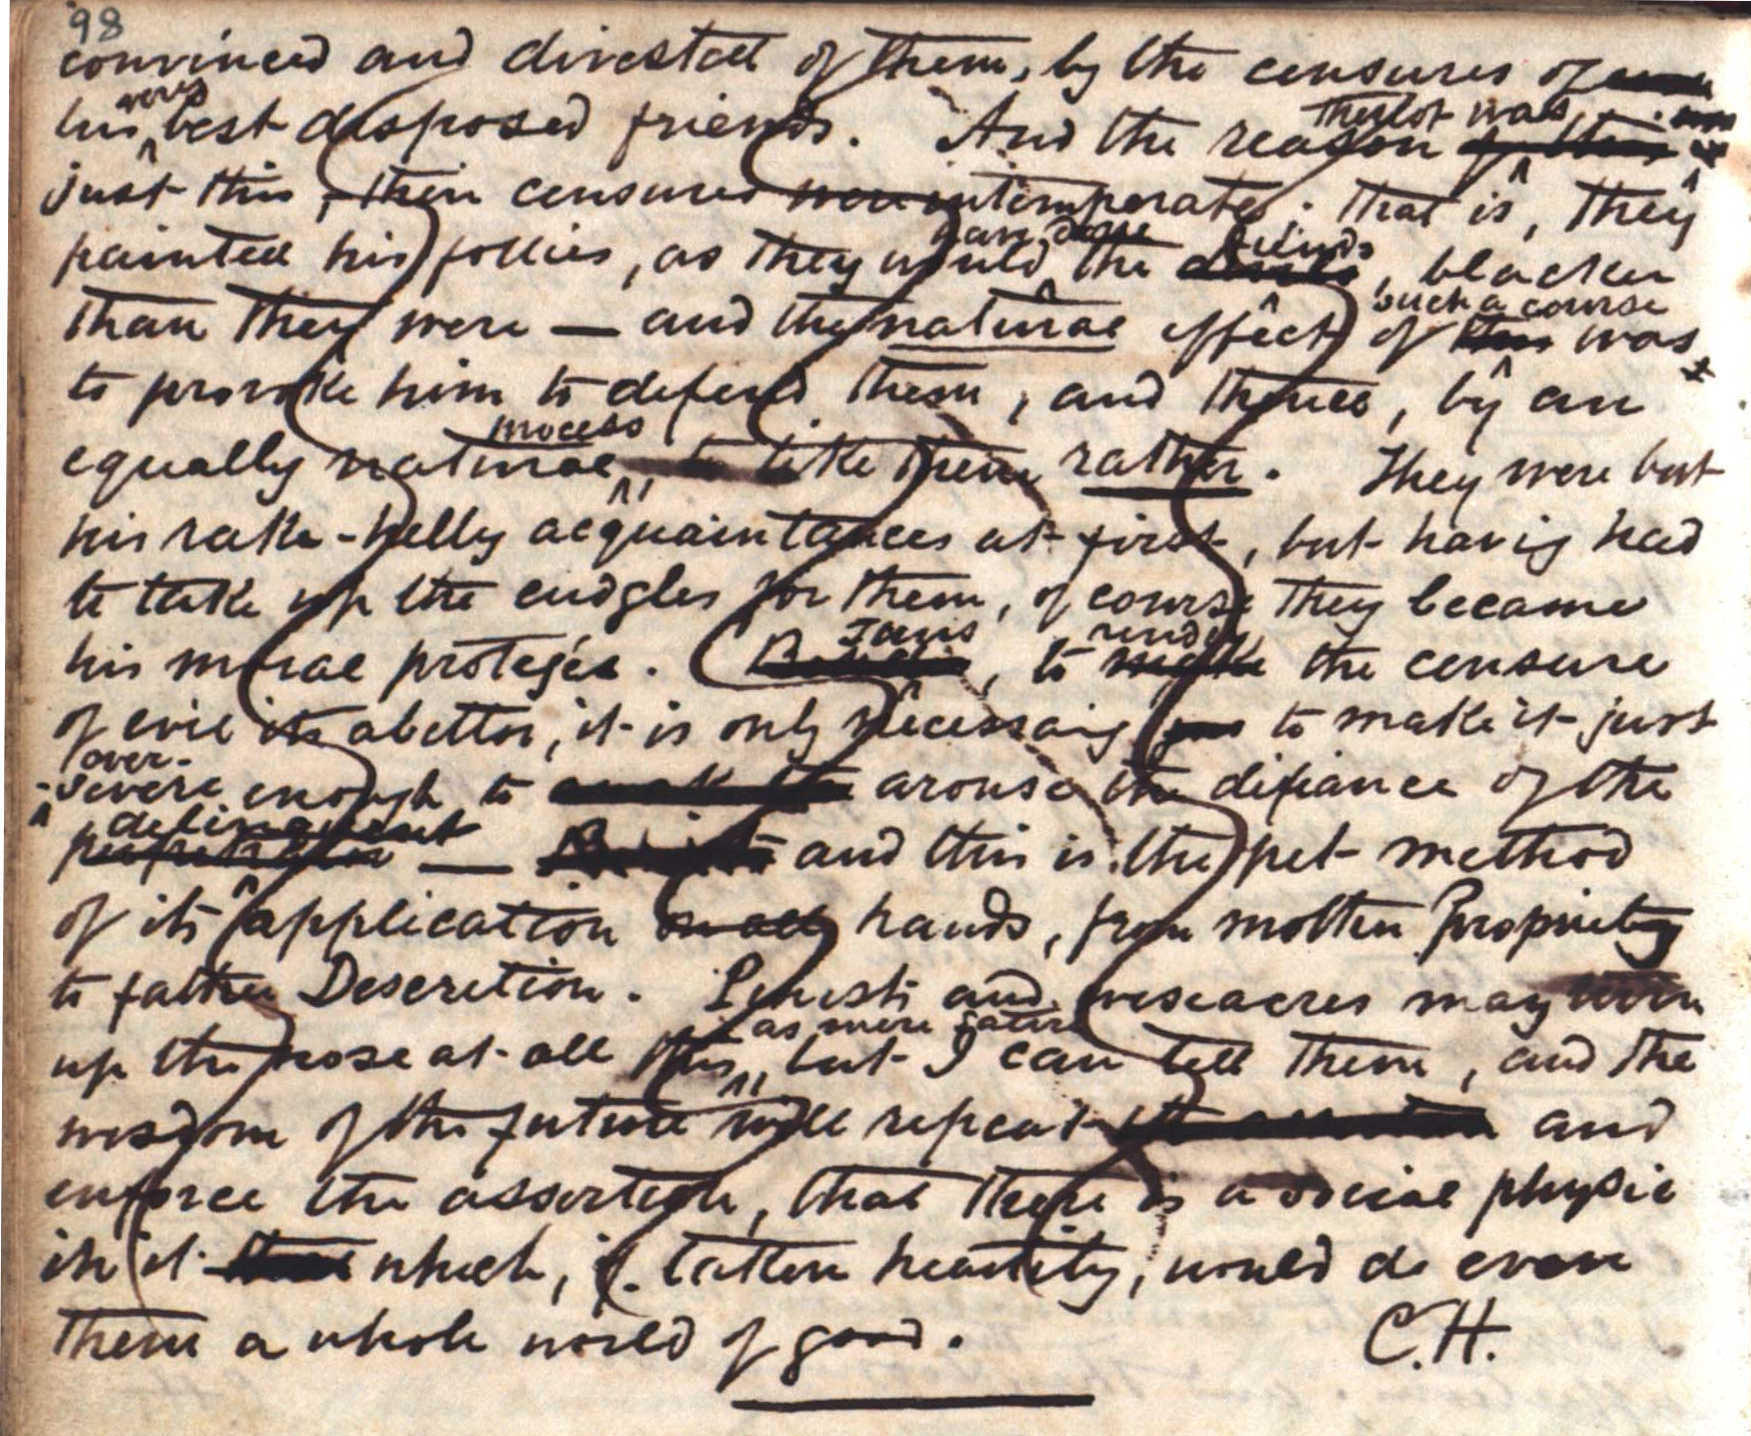 98
convinced and divested of them, by the censures of
his very best disposed friends. And the reason
just this, their censures were intemperate; that is, they
painted his follies, as they would have done the fiends, blacker
than they were — and the natural effect of such a course was
to provoke him to defend them, and thence, by an
equally natural process to like them rather. They were but
his rake-helly acquaintances at first, but having had
to take up the cudgles for them, of course they became
his moral protegés. Thus, to render the censure
of evil its abettor, it is only necessary to make it just
over-severe enough to arouse the defiance of the
delinquent — and this is the pet method
of its application hands, from molten Propriety
to Descretion. and wiseacres may turn
up the nose at all this, as mere satire but I can tell them, and the
wisdom of the future will repeat and
enforce the assertion, that there is a social physic
in it which, if taken heartily, would do even
them a whole world of good. C.H.